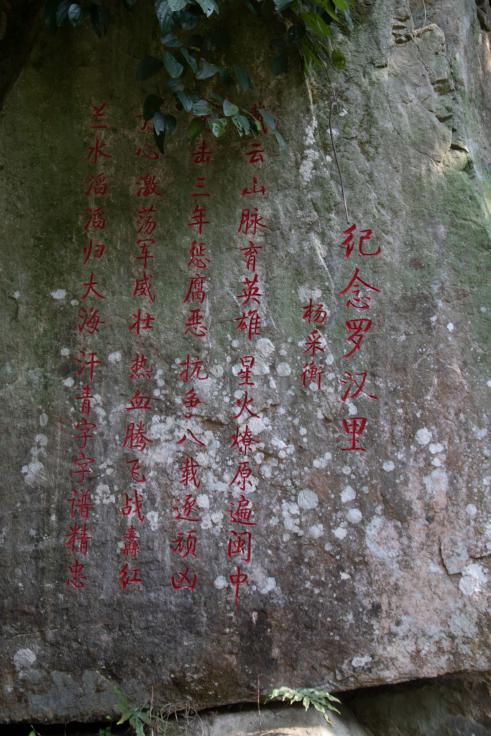 纪念罗汉里
杨采衡
云山脉育英雄 星火燎原遍闽中
击三年惩腐恶 抗争八载逐顽凶
心激荡军威壮 热血腾飞战轰红
兰水滔滔归大海 汗青字字谱精忠